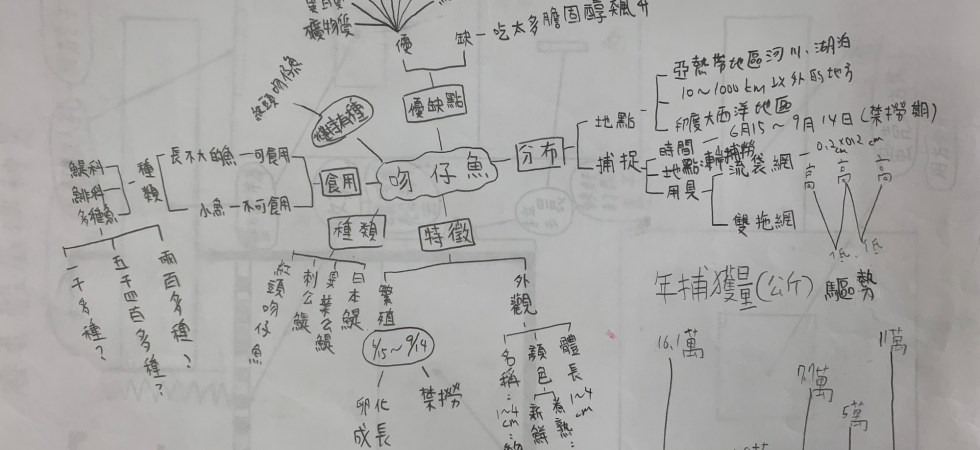 礦物質
優
缺-吃太多膽固醇飆升
優缺點
吻仔魚
分布
地點
亞熱帶地區河川、湖泊
10~1000km以外的地方
印度大西洋地區
捕捉
時間
6月15~9月14日(禁撈期)
地點
用具
流袋網
雙拖網
0.2cm×0.2cm
高
高
高
低
低
食用
長不大的魚-可食用
小魚-不可食用
種類
鯷科
鯡科
多種魚
一千多種?
五千四百多種?
兩百多種?
種類
紅頭吻仔魚
刺公鯷
異葉公鯷
日本鯷
特徵
繁殖
6/15~9/14
卵化
成長
禁撈
外觀
名稱:1~4cm:
顏色
新鮮
煮熟:
體長
1~4cm
年捕獲量(公斤)驅勢
16.1萬
7.7萬
5萬
11萬